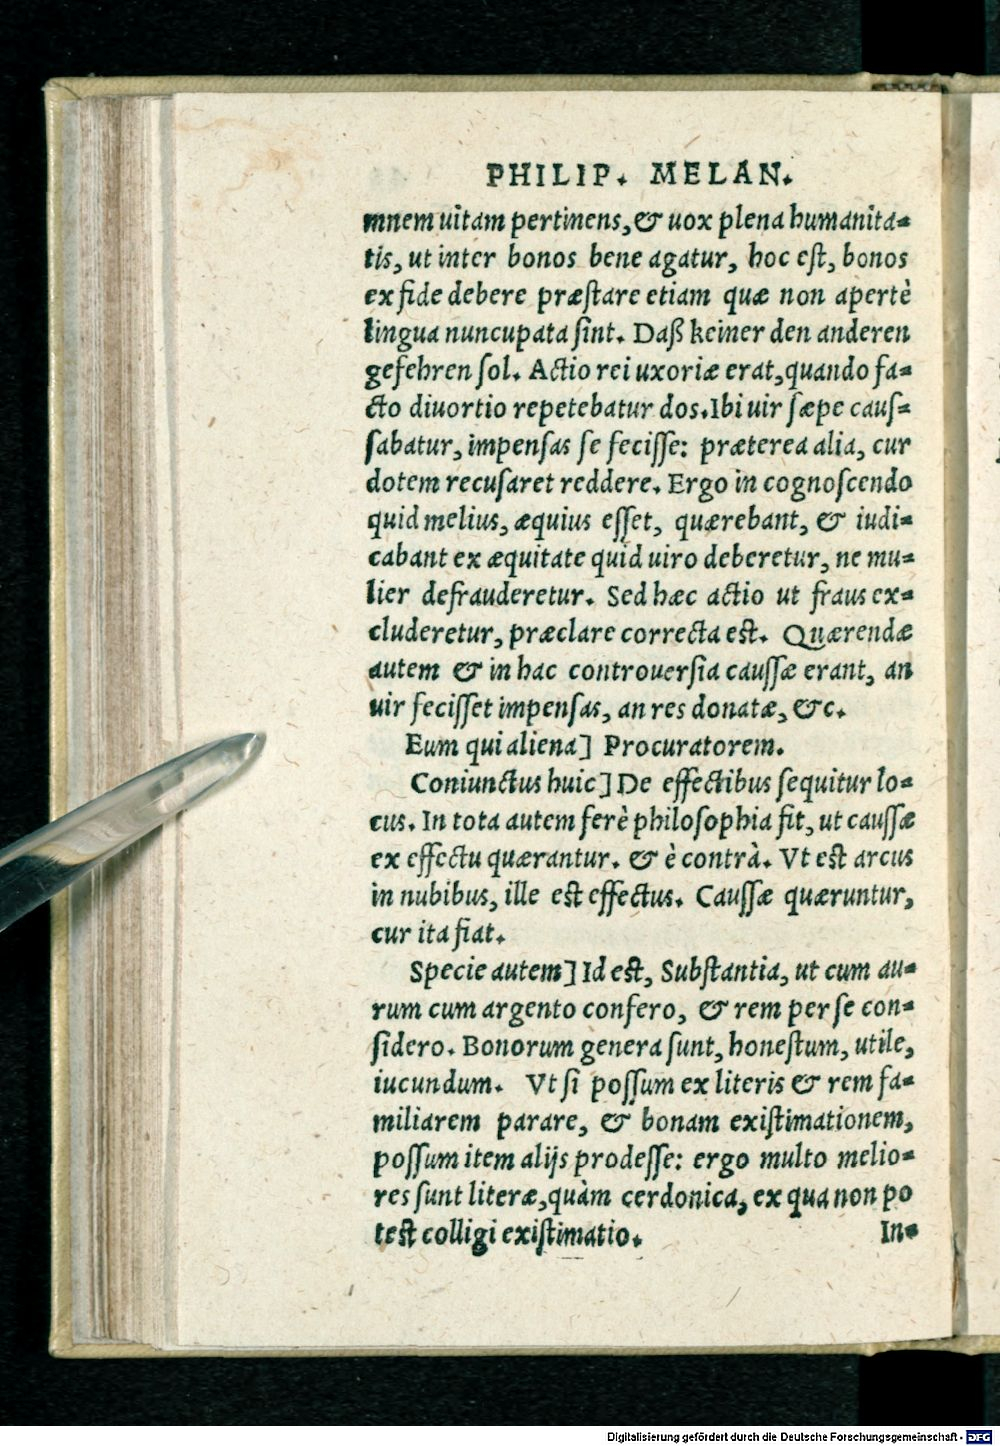 PHILIP. MELAN.
mnem uitam pertinens, & uox plena humanita-
tis, ut inter bonos bene agatur, hoc eſt, bonos
ex fide debere præſtare etiam quæ non apertè
lingua nuncupata ſint. Daß keiner den anderen
gefehren ſol. Actio rei uxoriæ erat, quando fa-
cto diuortio repetebatur dos. Ibi uir ſæpe cauſ-
ſabatur, impenſas ſe feciſſe: præterea alia, cur
dotem recuſaret reddere. Ergo in cognoſcendo
quid melius, æquius eſſet, quærebant, & iudi-
cabant ex æquitate quid uiro deberetur, ne mu-
lier defrauderetur. Sed hæc actio ut fraus ex-
cluderetur, præclare correcta est. Quærendæ
autem & in hac controuerſia cauſſæ erant, an
uir feciſſet impenſas, an res donatæ, &c.
Eum qui aliena] Procuratorem.
Coniunctus huic] De effectibus ſequitur lo-
cus. In tota autem ferè philoſophia fit, ut cauſſæ
ex effectu quærantur. & è contrà. Vt est arcus
in nubibus, ille est effectus. Cauſſæ quæruntur,
cur ita fiat.
Specie autem] Id est, Subſtantia, ut cum au-
rum cum argento confero, & rem per ſe con-
ſidero. Bonorum genera ſunt, honeſtum, utile,
iucundum. Vt ſi poſſum ex literis & rem fa-
miliarem parare, & bonam exiſtimationem,
poſſum item alijs prodeſſe: ergo multo melio-
res ſunt literæ, quàm cerdonica, ex qua non po
test colligi exiſtimatio. In-
Digitalisierung gefördert durch die Deutsche Forschungsgemeinschaft - DFG